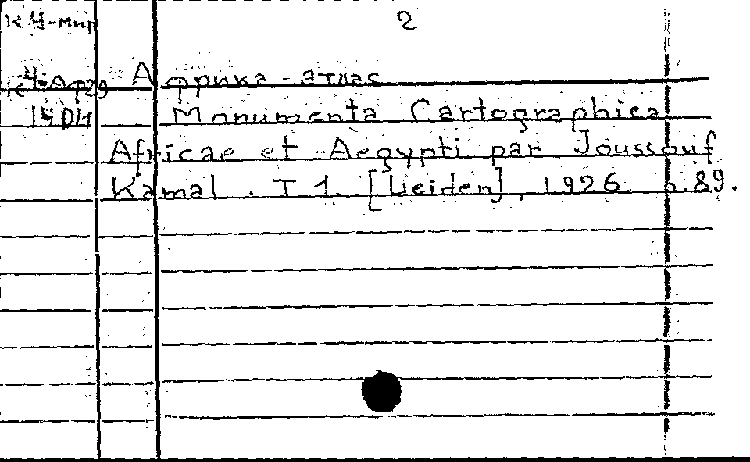 К У-Мир 2
Африка - атлас
Monumenta Cartographica
Africae et Aegypti par Joussouf
Kamal. T 1. [Leiden], 1926. 89.